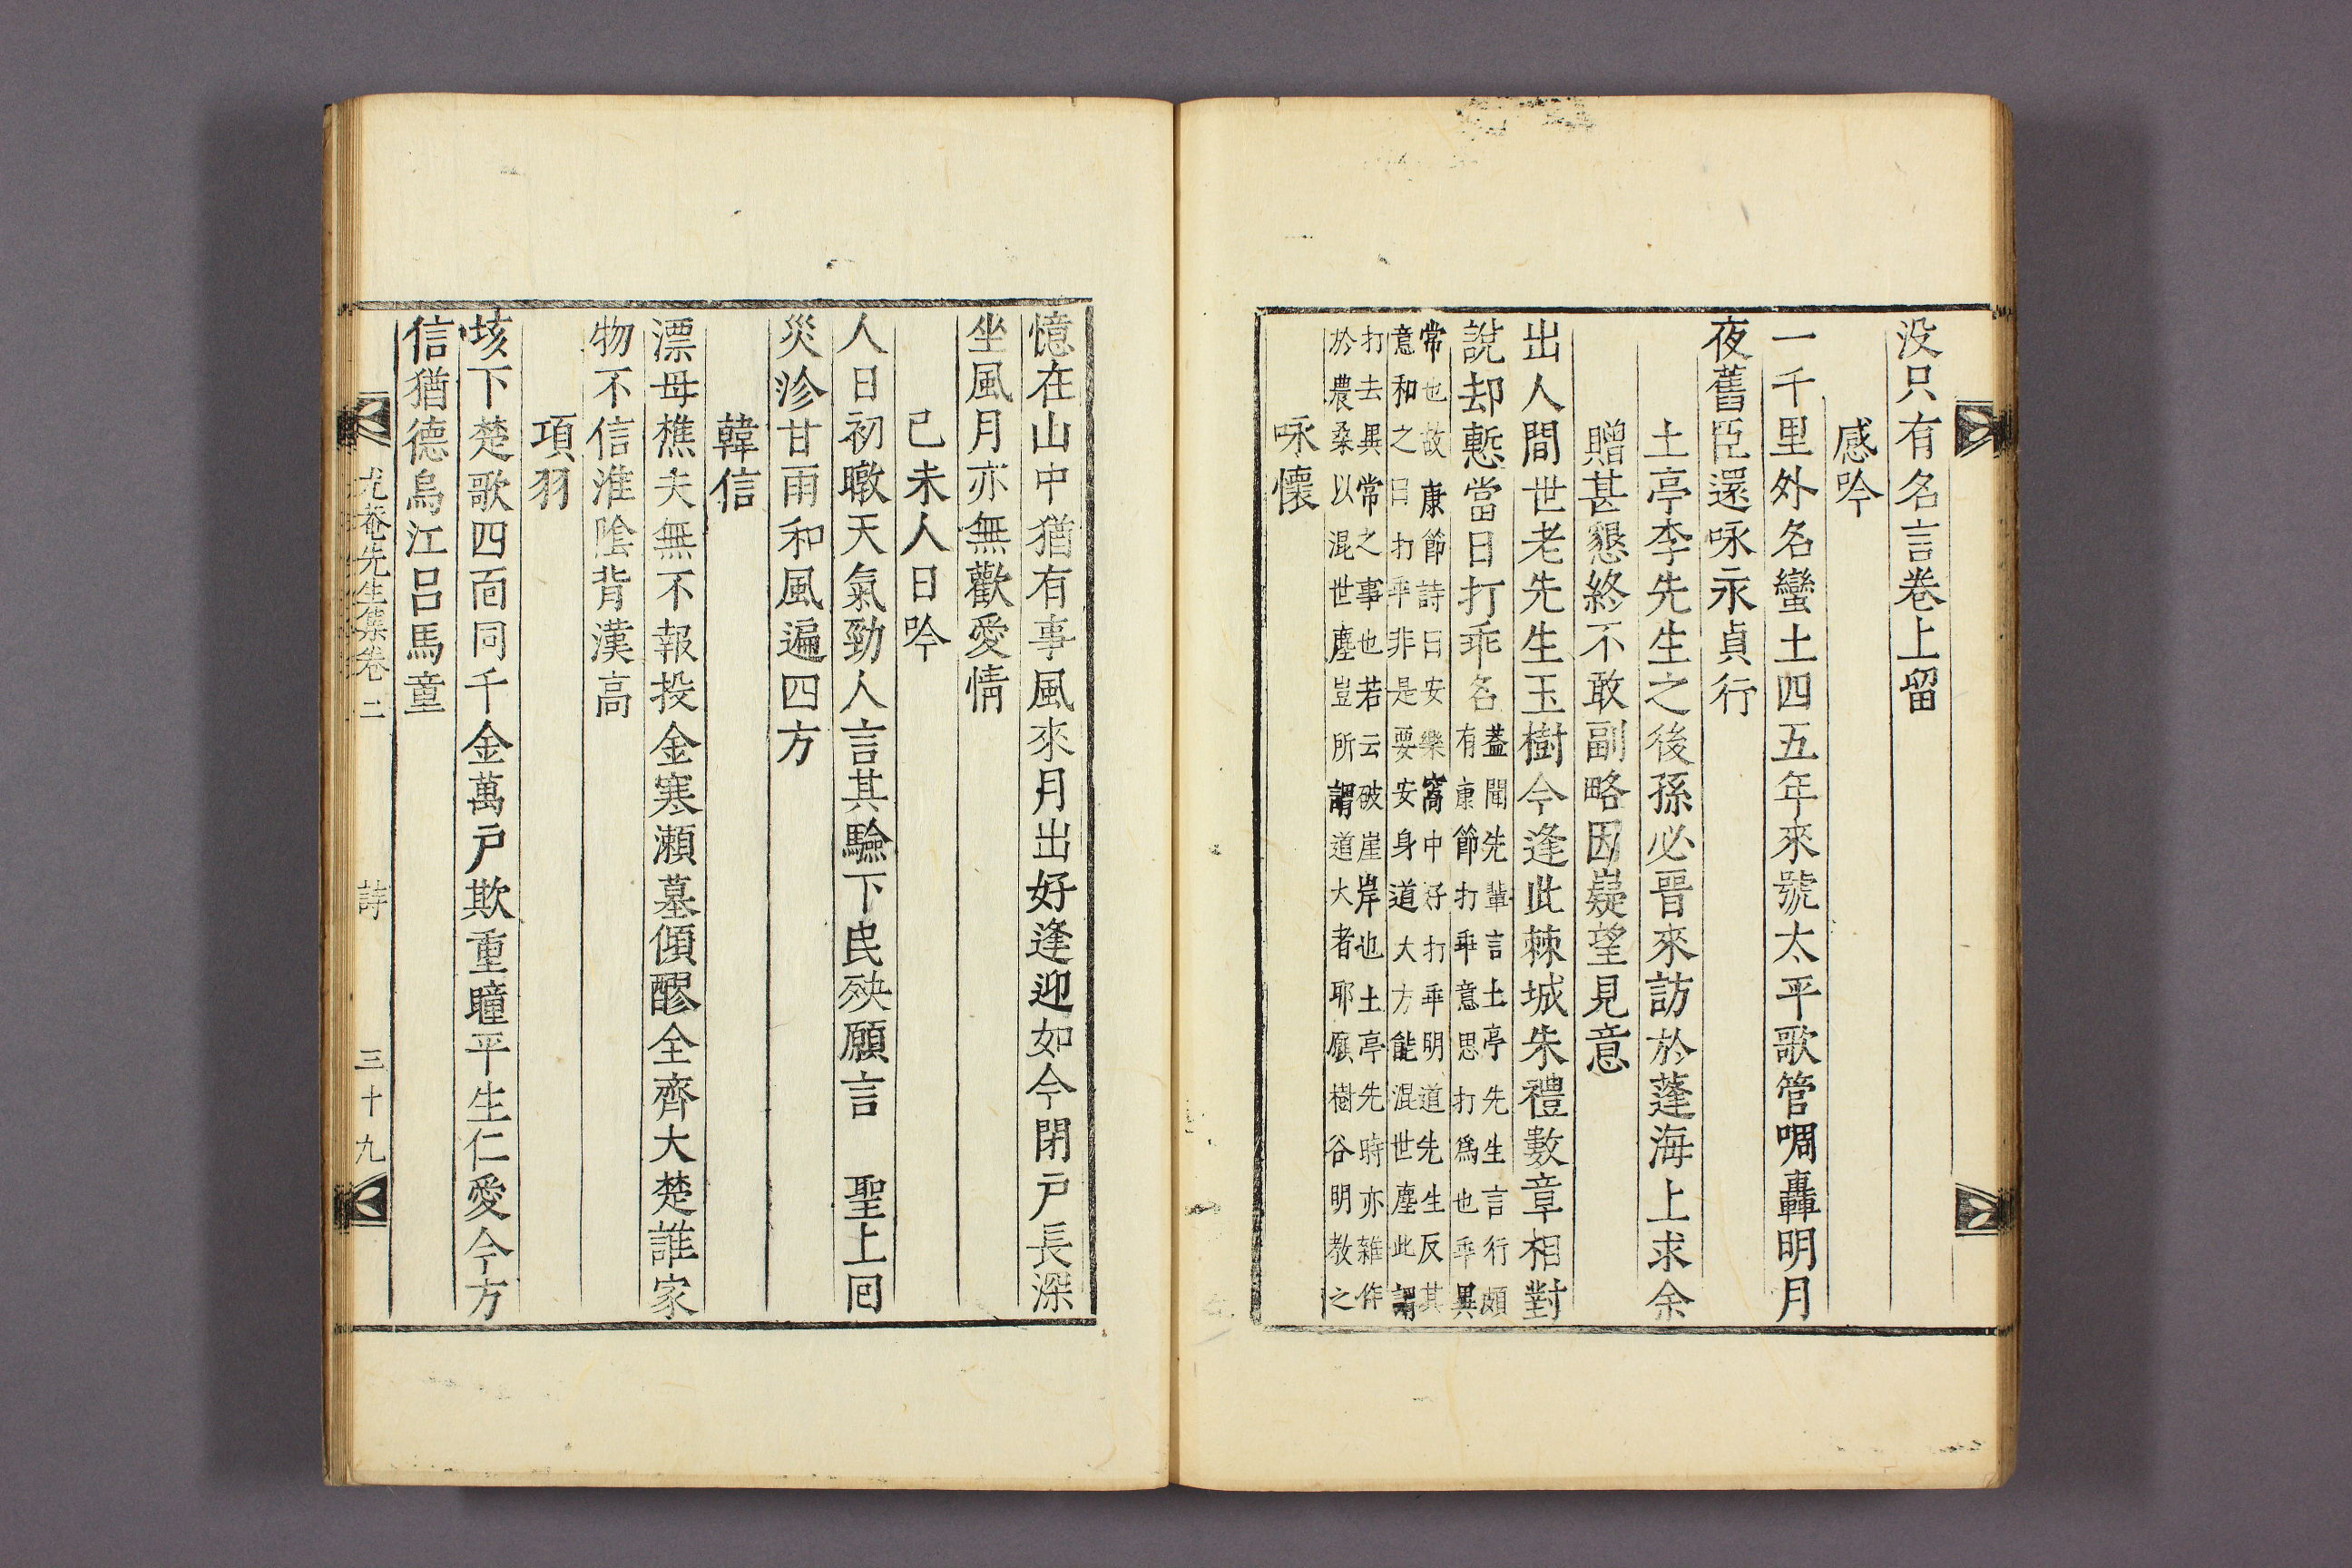 没只有名言卷上留
感吟
一千里外名蠻土四五年來號太平歌管啁轟明月
夜舊臣還咏永貞行
土亭李先生之後孫必晋來訪於蓬海上求余
贈甚懇終不敢副略因嶷望見意
出人間世老先生玉樹今逢此棘城朱禮數章相對
說却慙當日打乖名
蓋聞先輩言土亭先生言行頗
有康節打乖意思打爲也乖異
常也故康節詩曰安樂窩中好打乖明道先生反其
意和之曰打乖非是要安身道大方能混世塵此謂
打去異常之事也若云破崖岸也土亭先時亦雜作
於農桑以混世塵豈所謂道大者耶願樹谷明教之
咏懷
憶在山中猶有事風來月出好逢迎如今閉戶長深
坐風月亦無歡愛情
己未人日吟
人日初暾天氣勁人言其驗下民殃願言 聖上囘
災沴甘雨和風遍四方
韓信
漂母樵夫無不報投金寒瀬墓傾醪全齊大楚誰家
物不信淮陰背漢高
項羽
垓下楚歌四面同千金萬戶欺重瞳平生仁愛今方
信猶德烏江呂馬童
菴先生集卷二 詩 三十九